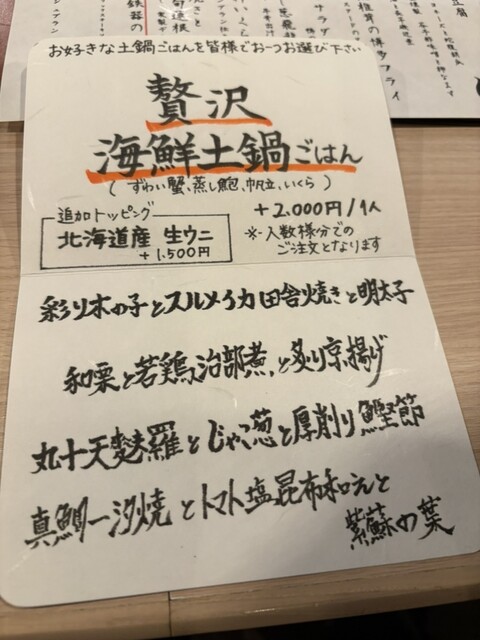 お好きな土鍋ごはんを皆様でお一つお選び下さい
贅沢
海鮮土鍋ごはん
(ずわい蟹、蒸し鮑、帆立、いくら)
追加トッピング
北海道産 生ウニ
+1,500円
+2,000円/1人
※人数様分での
ご注文となります
彩り木の子とスルメイカ田舎焼きと明太子
和栗と若鶏治部煮、と炙り京揚げ
丸十天麩羅とじゃこ葱と厚削り鰹節
真鯛一汐焼とトマト塩昆布和えと
紫蘇の葉
サラダ
椎茸の博多フライ